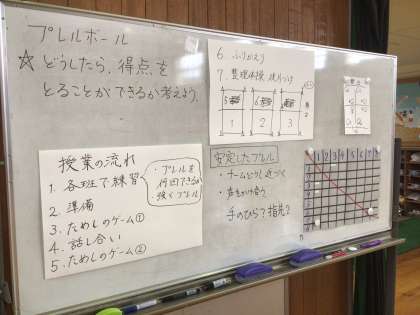 プレルボール
☆どうしたら、得点を
とることができるか考えよう。
授業の流れ
1. 各班で練習
・プレルを
何回できるか
強くプレル
2 準備
3. ためしのゲーム①
4. 話し合い
5. ためしのゲーム②
6. ふりかえり
7. 整理体操、片づけ
1 2 3
安定したプレル
・チームどうし近づく
・声をかけ合う
手のひらで指先
1 2 3 4 5 6 7 8